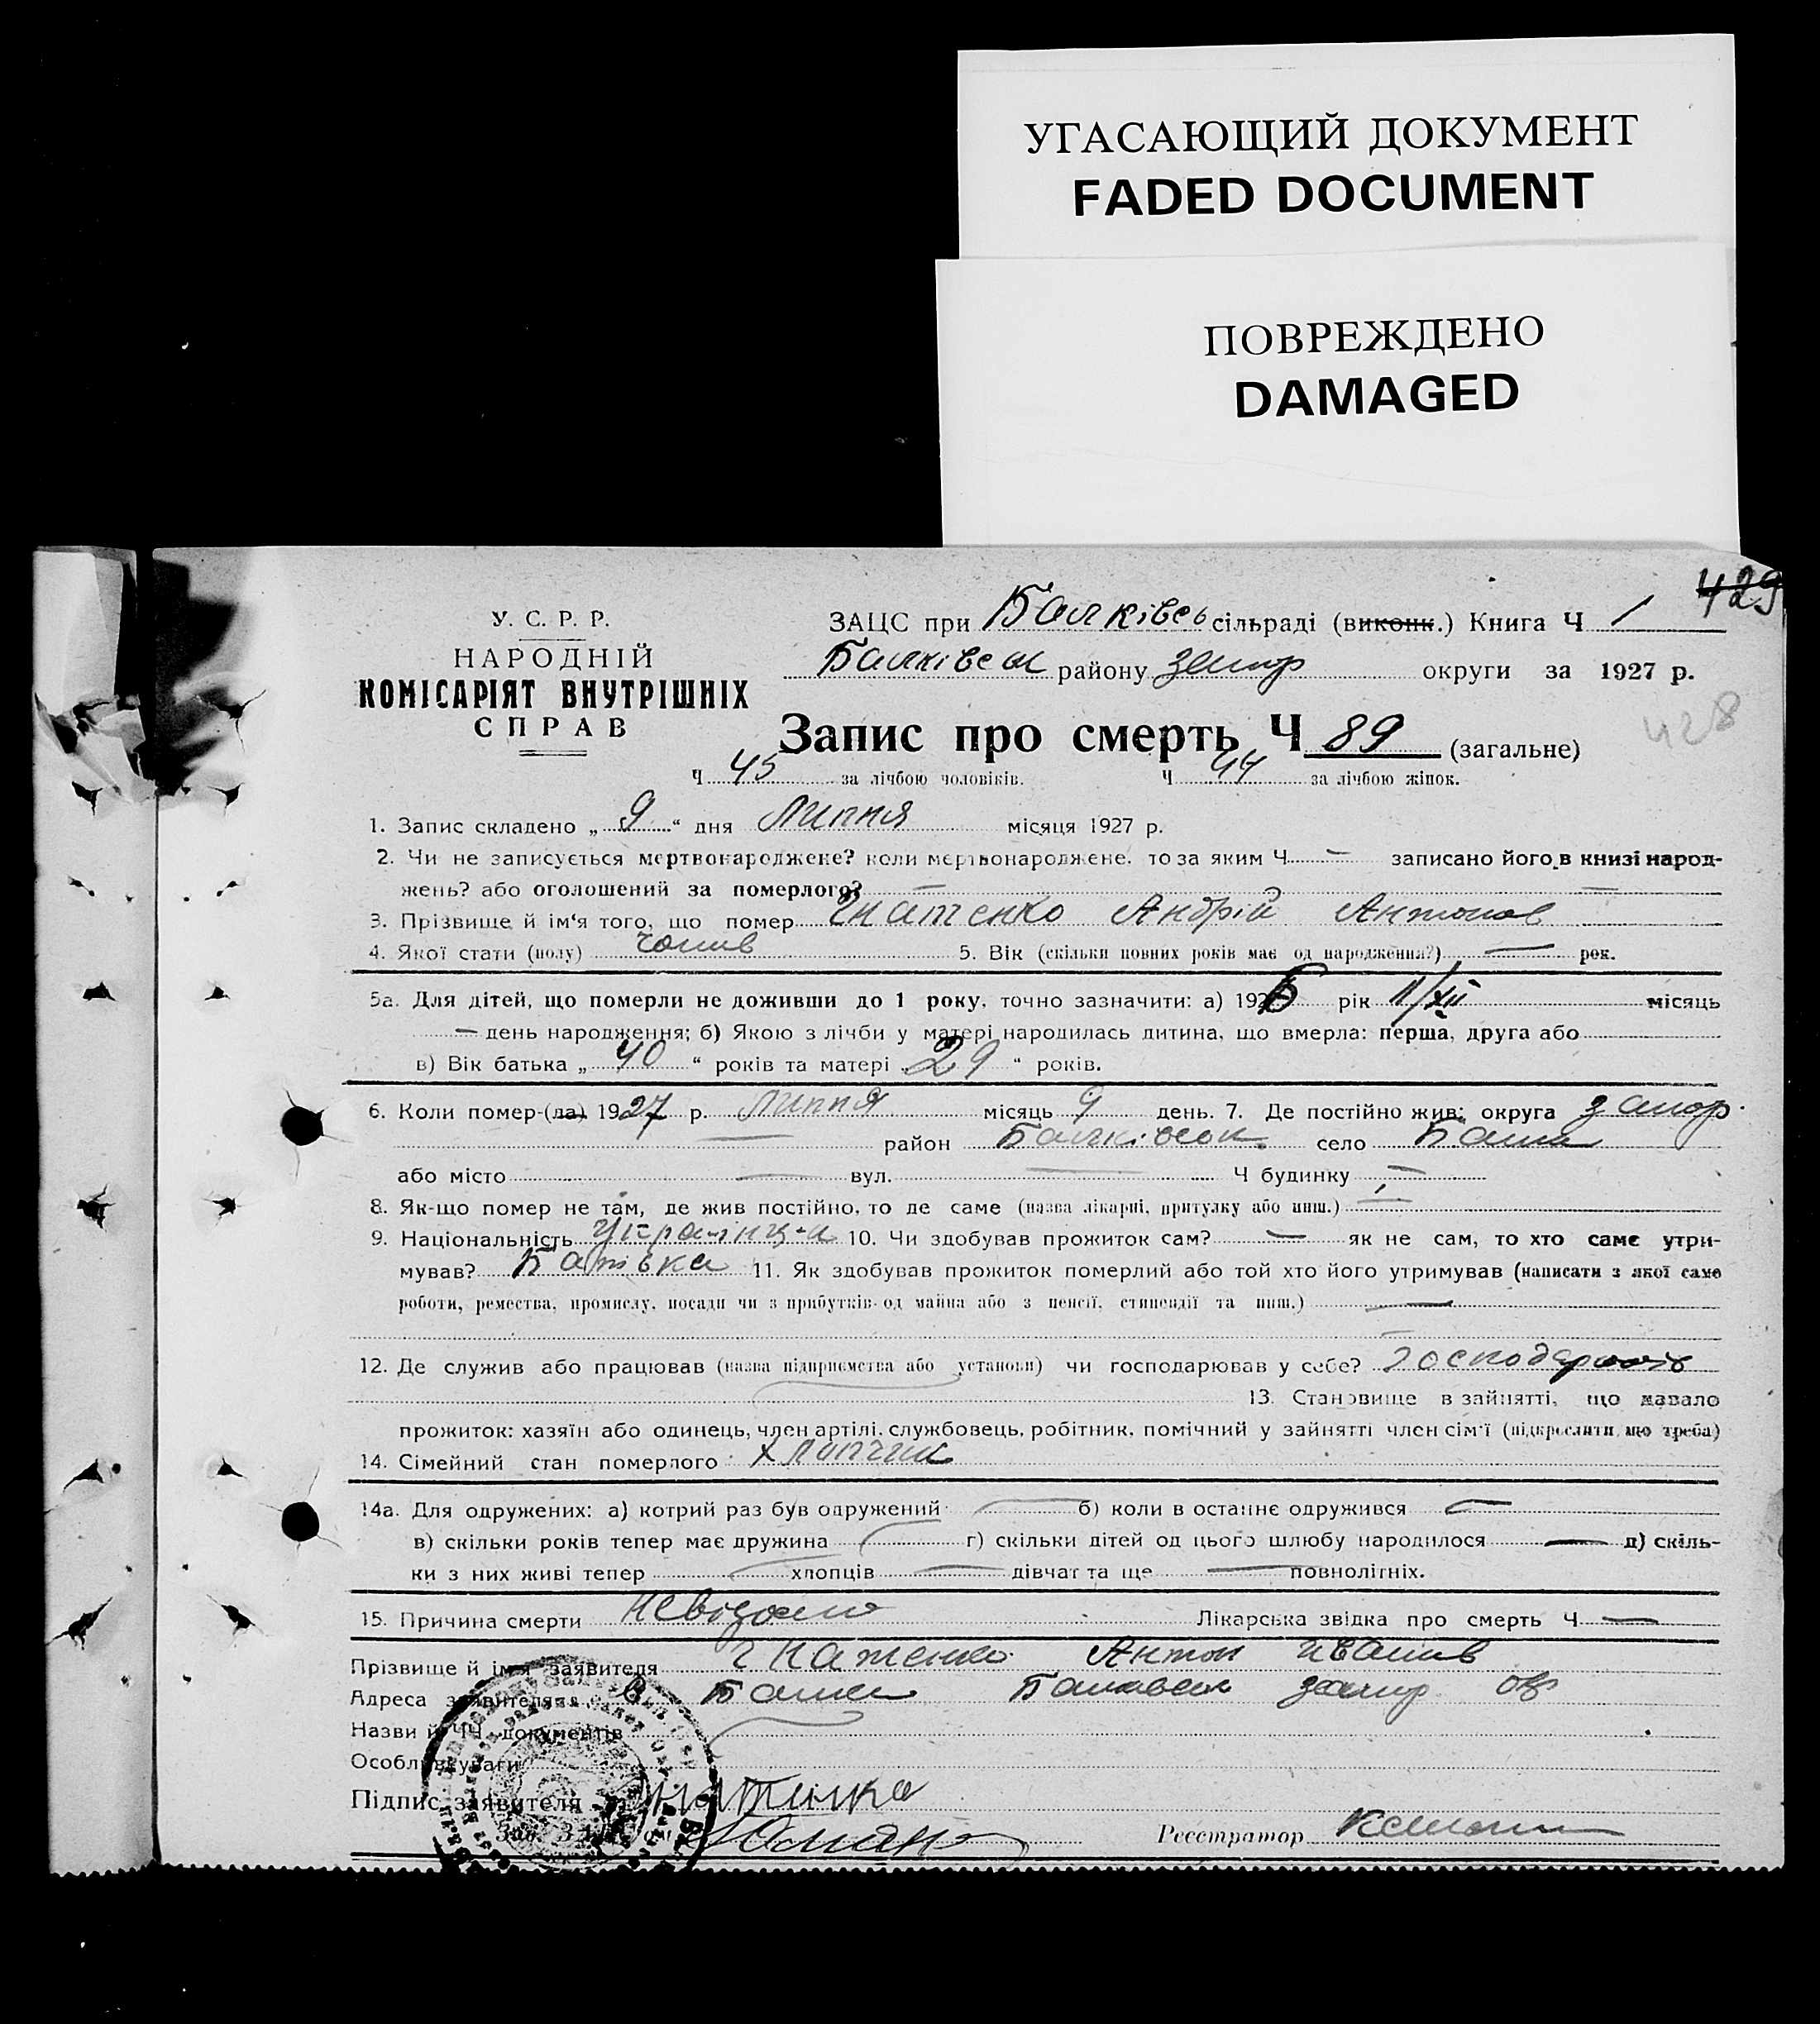 УГАСАЮЩИЙ ДОКУМЕНТ
FADED DOCUMENT
ПОВРЕЖДЕНО
DAMAGED
429
У. С. Р. Р.
НАРОДНІЙ
КОМІСАРІЯТ ВНУТРІШНІХ
СПРАВ
ЗАЦС при Балківсь сільраді (виконк.) Книга Ч 1
Балківськ району запор округи за 1927 р.
428
Запис про смерть Ч 89 (загальне)
Ч 45 за лічбою чоловіків. Ч 44 за лічбою жінок.
1. Запис складено „ 9 “ дня Липня місяця 1927 р.
2. Чи не записується мертвонароджене? коли мертвонароджене, то за яким Ч — записано його в книзі народ-
жень? або оголошений за померлого? —
3. Прізвище й ім'я того, що помер Гнатенко Андрій Антонов
4. Якої стати (полу) чолив 5. Вік (скільки повних років має од народження?) — рок.
5а. Для дітей, що померли не доживши до 1 року, точно зазначити: а) 1926 рік 11/XII місяць
— день народження; б) Якою з лічби у матері народилась дитина, що вмерла: перша, друга або
в) Вік батька „ 40 “ років та матері „ 29 “ років.
6. Коли помер-(ла) 1927 р. Липня місяць 9 день. 7. Де постійно жив: округа запор.
— район Балківськ село Балки
або місто — вул. — Ч будинку —
8. Як-що помер не там, де жив постійно, то де саме (назва лікарні, притулку або инш.) —
9. Національність Українц-а 10. Чи здобував прожиток сам? — як не сам, то хто саме утри-
мував? Батівка 11. Як здобував прожиток померлий або той хто його утримував (написати з якої саме
роботи, ремества, промислу, посади чи з прибутків од майна або з пенсії, стипендії та инш.) —
12. Де служив або працював (назва підприємства або установи) чи господарював у себе?
13. Становище в зайнятті, що давало
прожиток: хазяїн або одинець, член артілі, службовець, робітник, помічний у зайнятті член сім'ї (підкреслити що треба)
14. Сімейний стан померлого Хлопчик
14а. Для одружених: а) котрий раз був одружений — б) коли в останнє одружився —
в) скільки років тепер має дружина — г) скільки дітей од цього шлюбу народилося — д) скіль-
ки з них живі тепер — хлопців — дівчат та ще — повнолітніх.
15. Причина смерти Невідомо Лікарська звідка про смерть Ч —
Прізвище й ім'я заявителя Гнатенко Антон Іванів
Адреса заявителя Балки запор
Назви й ЧЧ документів
Особливі уваги
Підпис заявителя Гнатинко
Зав. ЗАЦС'ом
Реєстратор